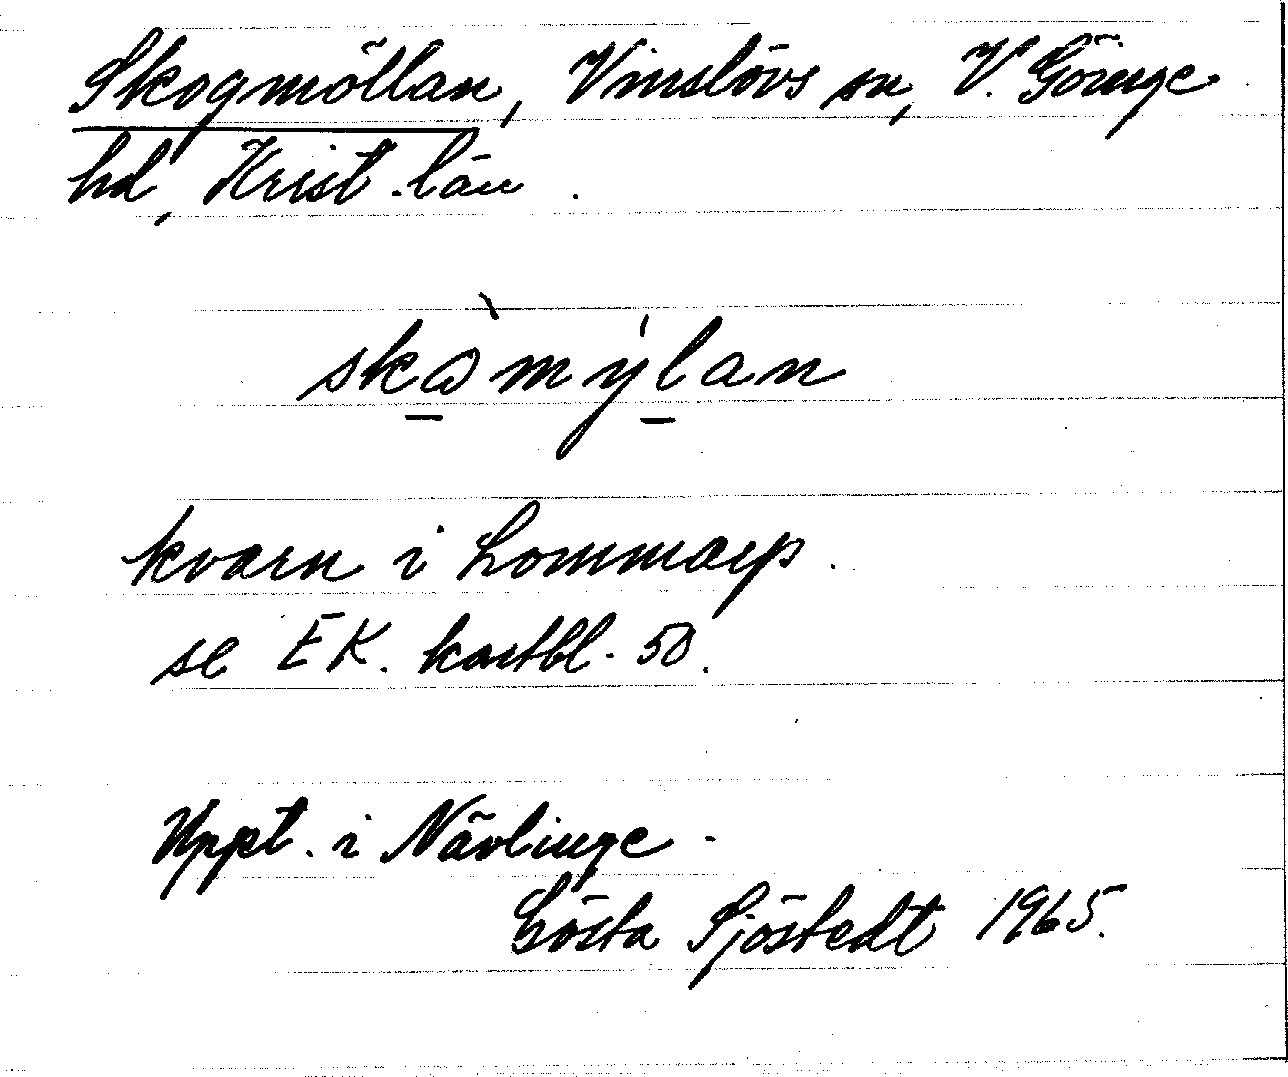 Skogmöllan, Vinslövs sn, V. Göinge
hd, Krist. län.
skɷ̱̀mýḻan
kvarn i Lommarp.
se EK. kartbl. 50.
Uppt. i Nävlinge.
Gösta Sjöstedt 1965.